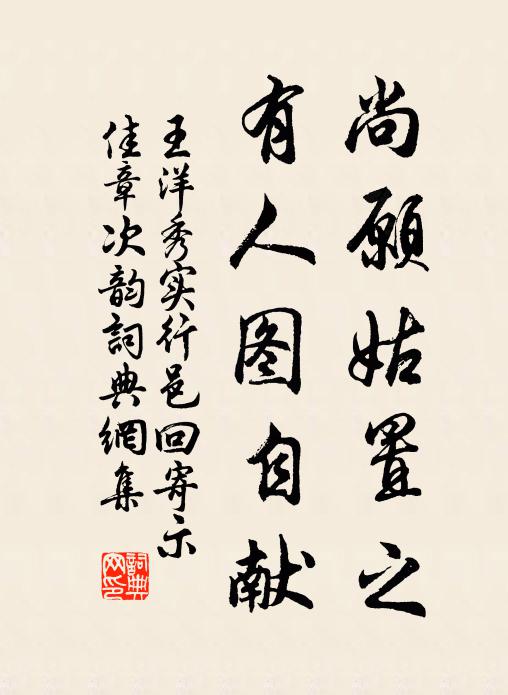 尚願姑置之
有人图自献
王洋秀实行邑回寄示
佳章次韵詞典網集
詞典
网印